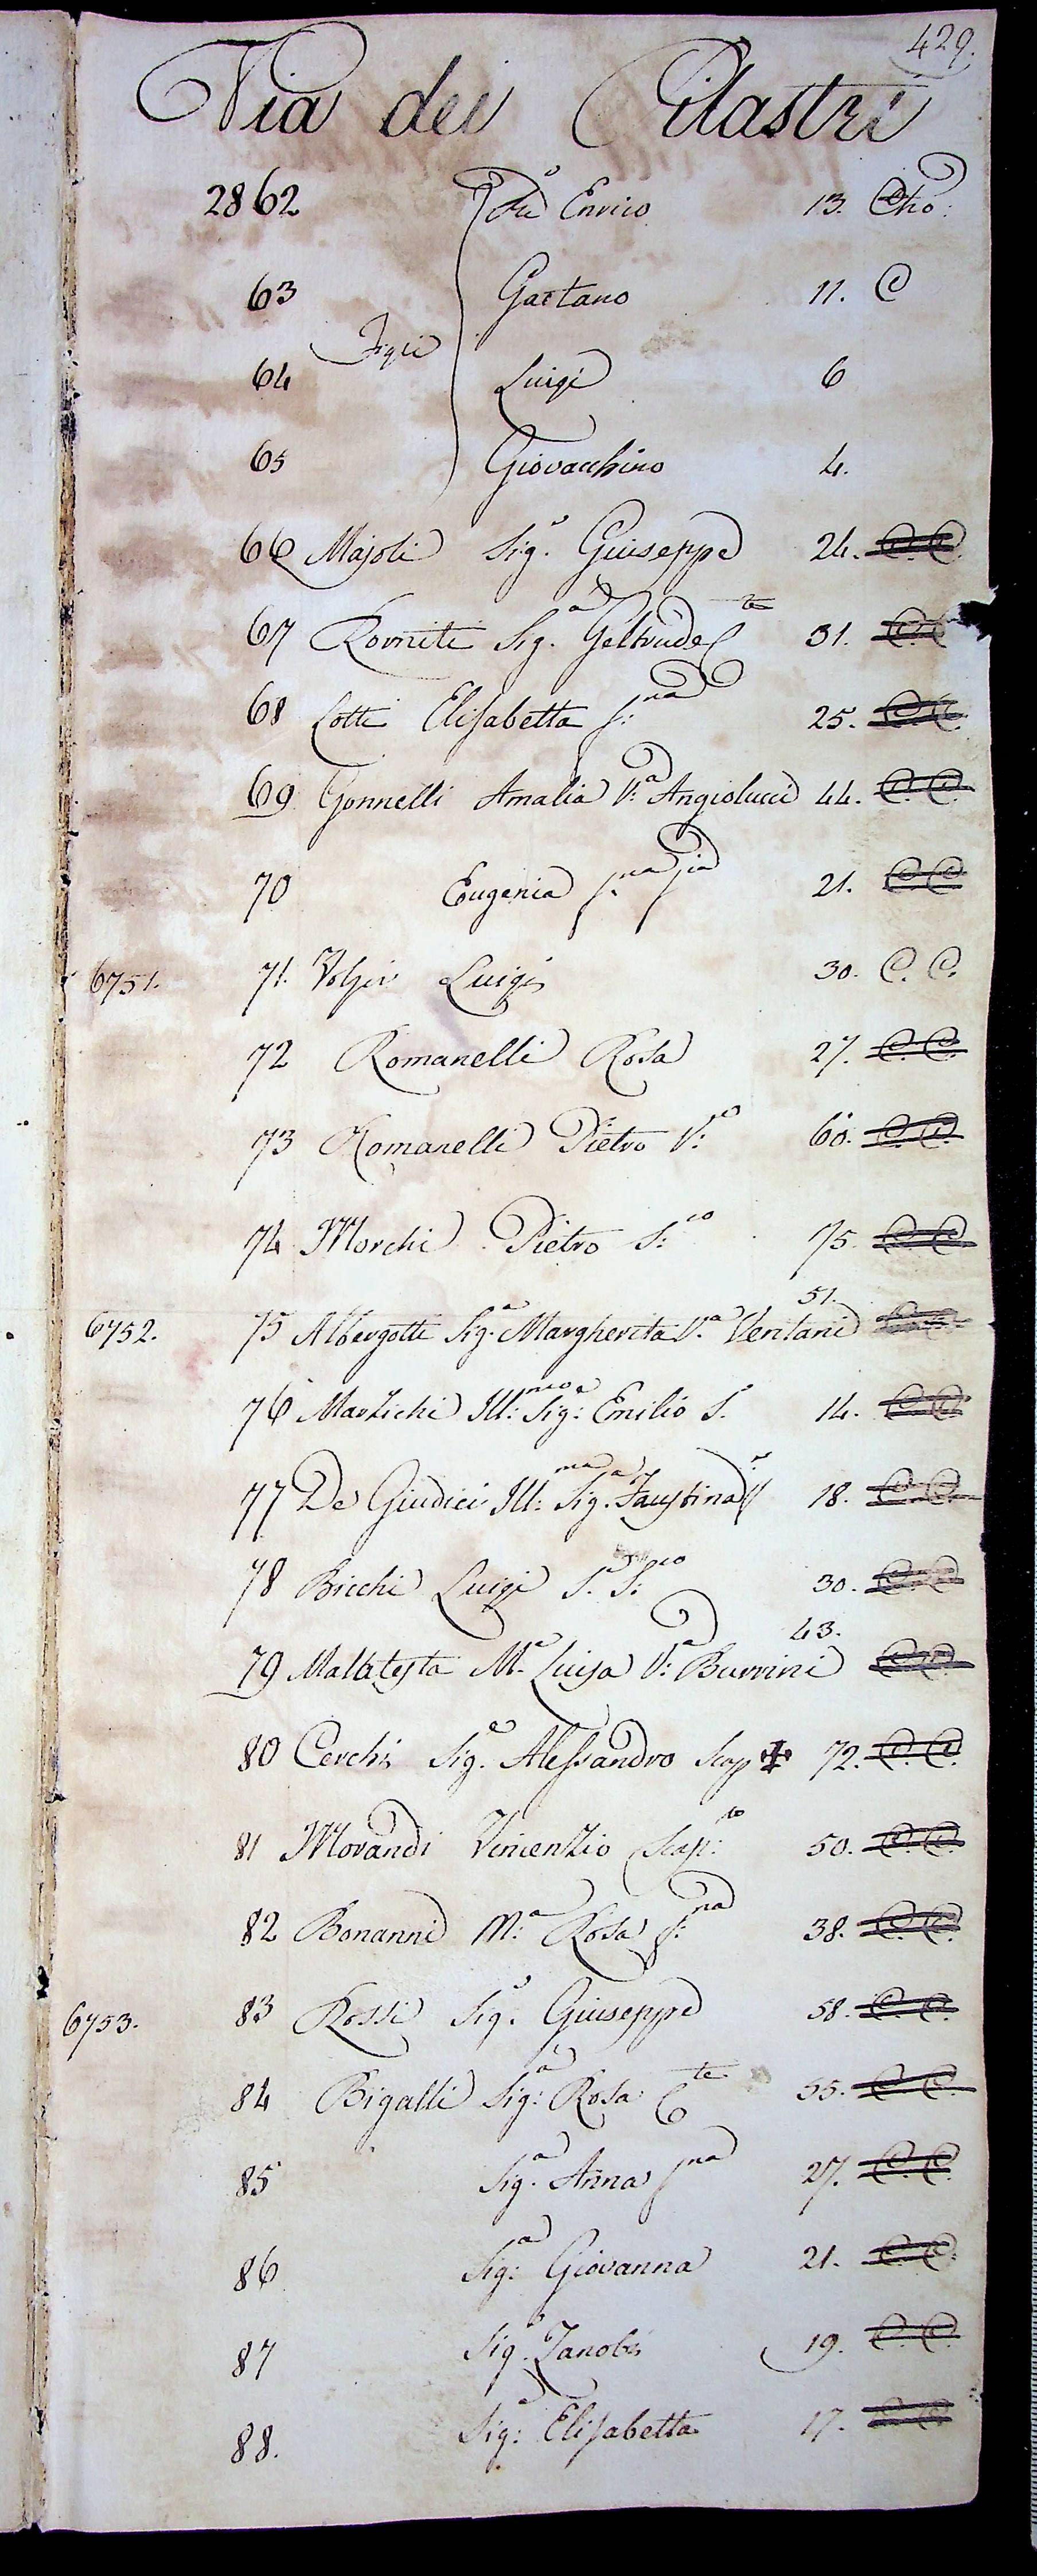 429.
Via dei Pilastri
2862 Enrico 13. Cho:
63 Gaetano 11. C
Figli
64 Luigi 6
65 Giovacchino 4.
66 Majoli Sig.r Giuseppe 24. C. C.
67 Sig.a Geltrude C.te 31. C. C.
68 Lotti Elisabetta S:na 25. C. C.
69 Gonnelli Amalia V:a Angiolucci 44. C. C.
70 Eugenia S.na 21. C. C.
6751. 71. Luigi 30. C. C.
72 Romanelli Rosa 27. C. C.
73 Romanelli Pietro V:o 60. C. C.
74 Morchi Pietro S:co 75. C. C.
51.
6752. 75 Albergotti Sig.a Margherita V.a Ventani C. C.
76 Marzichi Ill:mo Sig: Emilio S. 14. C. C.
77 De Giudici Ill:ma Sig.a Faustina 18. C. C.
78 Bicchi Luigi S. S:co 30. C. C.
43.
79 Malatesta M.a Luisa V:a Burrini C. C.
80 Cerchi Sig.e Alessandro Scap 72. C. C.
81 Morandi Vincenzio Scap:lo 50. C. C.
82 Bonanni M:a Rosa S:na 38. C. C.
6753. 83 Rossi Sig.r Giuseppe 58. C. C.
84 Bigalli Sig:a Rosa C.te 55. C. C.
85 Sig.a Anna S.na 27. C. C.
86 Sig:a Giovanna 21. C. C.
87 Sig.r Zanobi 19. C. C.
88. Sig:a Elisabetta 17. C. C.